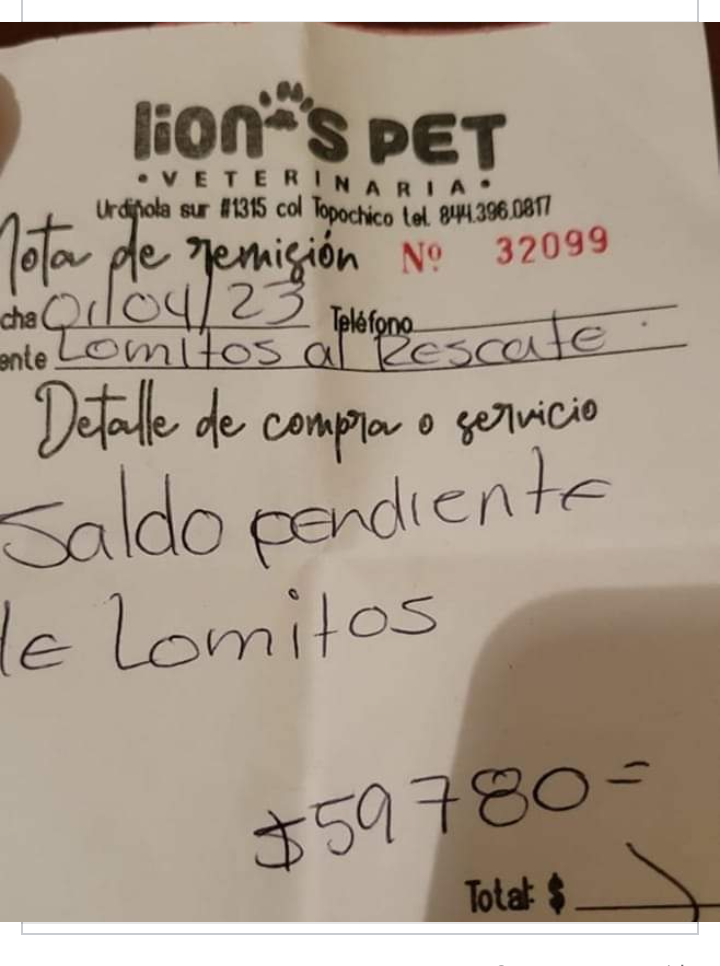 lion's PET
• VETERINARIA •
Urdiñola sur #1315 col Topochico tel. 844.396.0817
Nota de remisión Nº 32099
cha 01/04/23 Teléfono
ente Lomitos al Rescate.
Detalle de compra o servicio
Saldo pendiente
de Lomitos
$59780=
Total: $